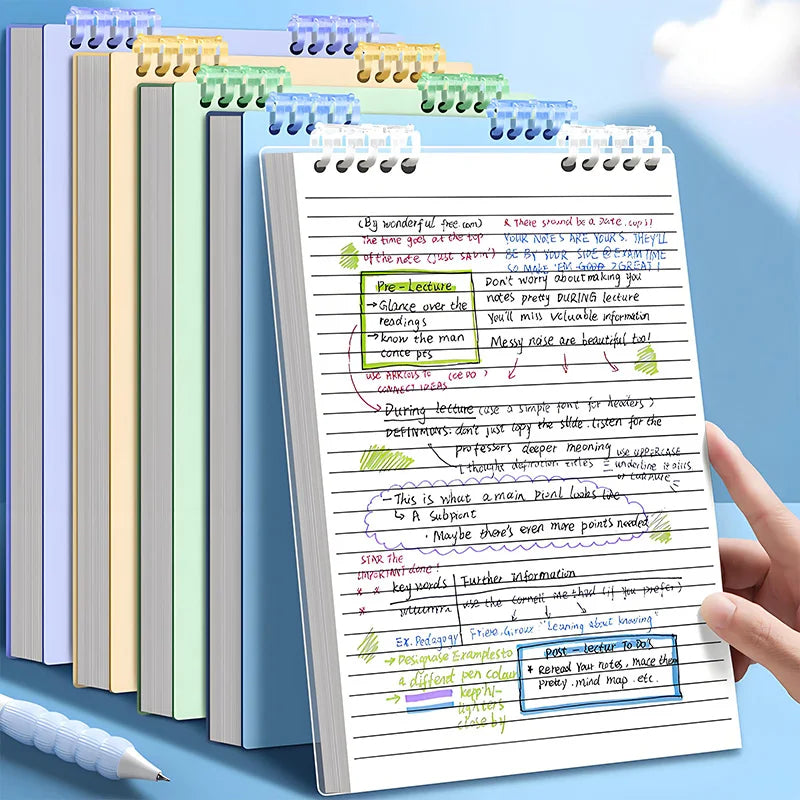 (By wonderful free.com)
The time goes at the top
of the note (just sayin')
YOUR NOTES ARE YOURS. THEY'LL
BE BY YOUR SIDE @ EXAM TIME
SO MAKE 'EM GOOD GREAT!
Pre-Lecture
→Glance over the
readings
→know the man
conce pts
Don't worry about making you
notes pretty DURING lecture
You'll miss valuable information
Messy noise are beautiful too!
USE ARROWS TO
CONNECT IDEAS
During lecture (use a simple font for headers)
DEFINITIONS: don't just copy the slide. listen for the
professors deeper meaning
use UPPERCASE
underline
- This is what a main looks like
↳ A subpoint
· Maybe there's even more points needed
STAR The
IMPORTANT done!
* * key words
*
Further Information
use the cornell method (if you prefer)
Ex. Pedagogy
Friere, Giroux "Learning about knowing"
→
a differnt pen colour
→
close by
post - lectur To Do's
* Reread your notes, mace them
pretty. mind map. etc.